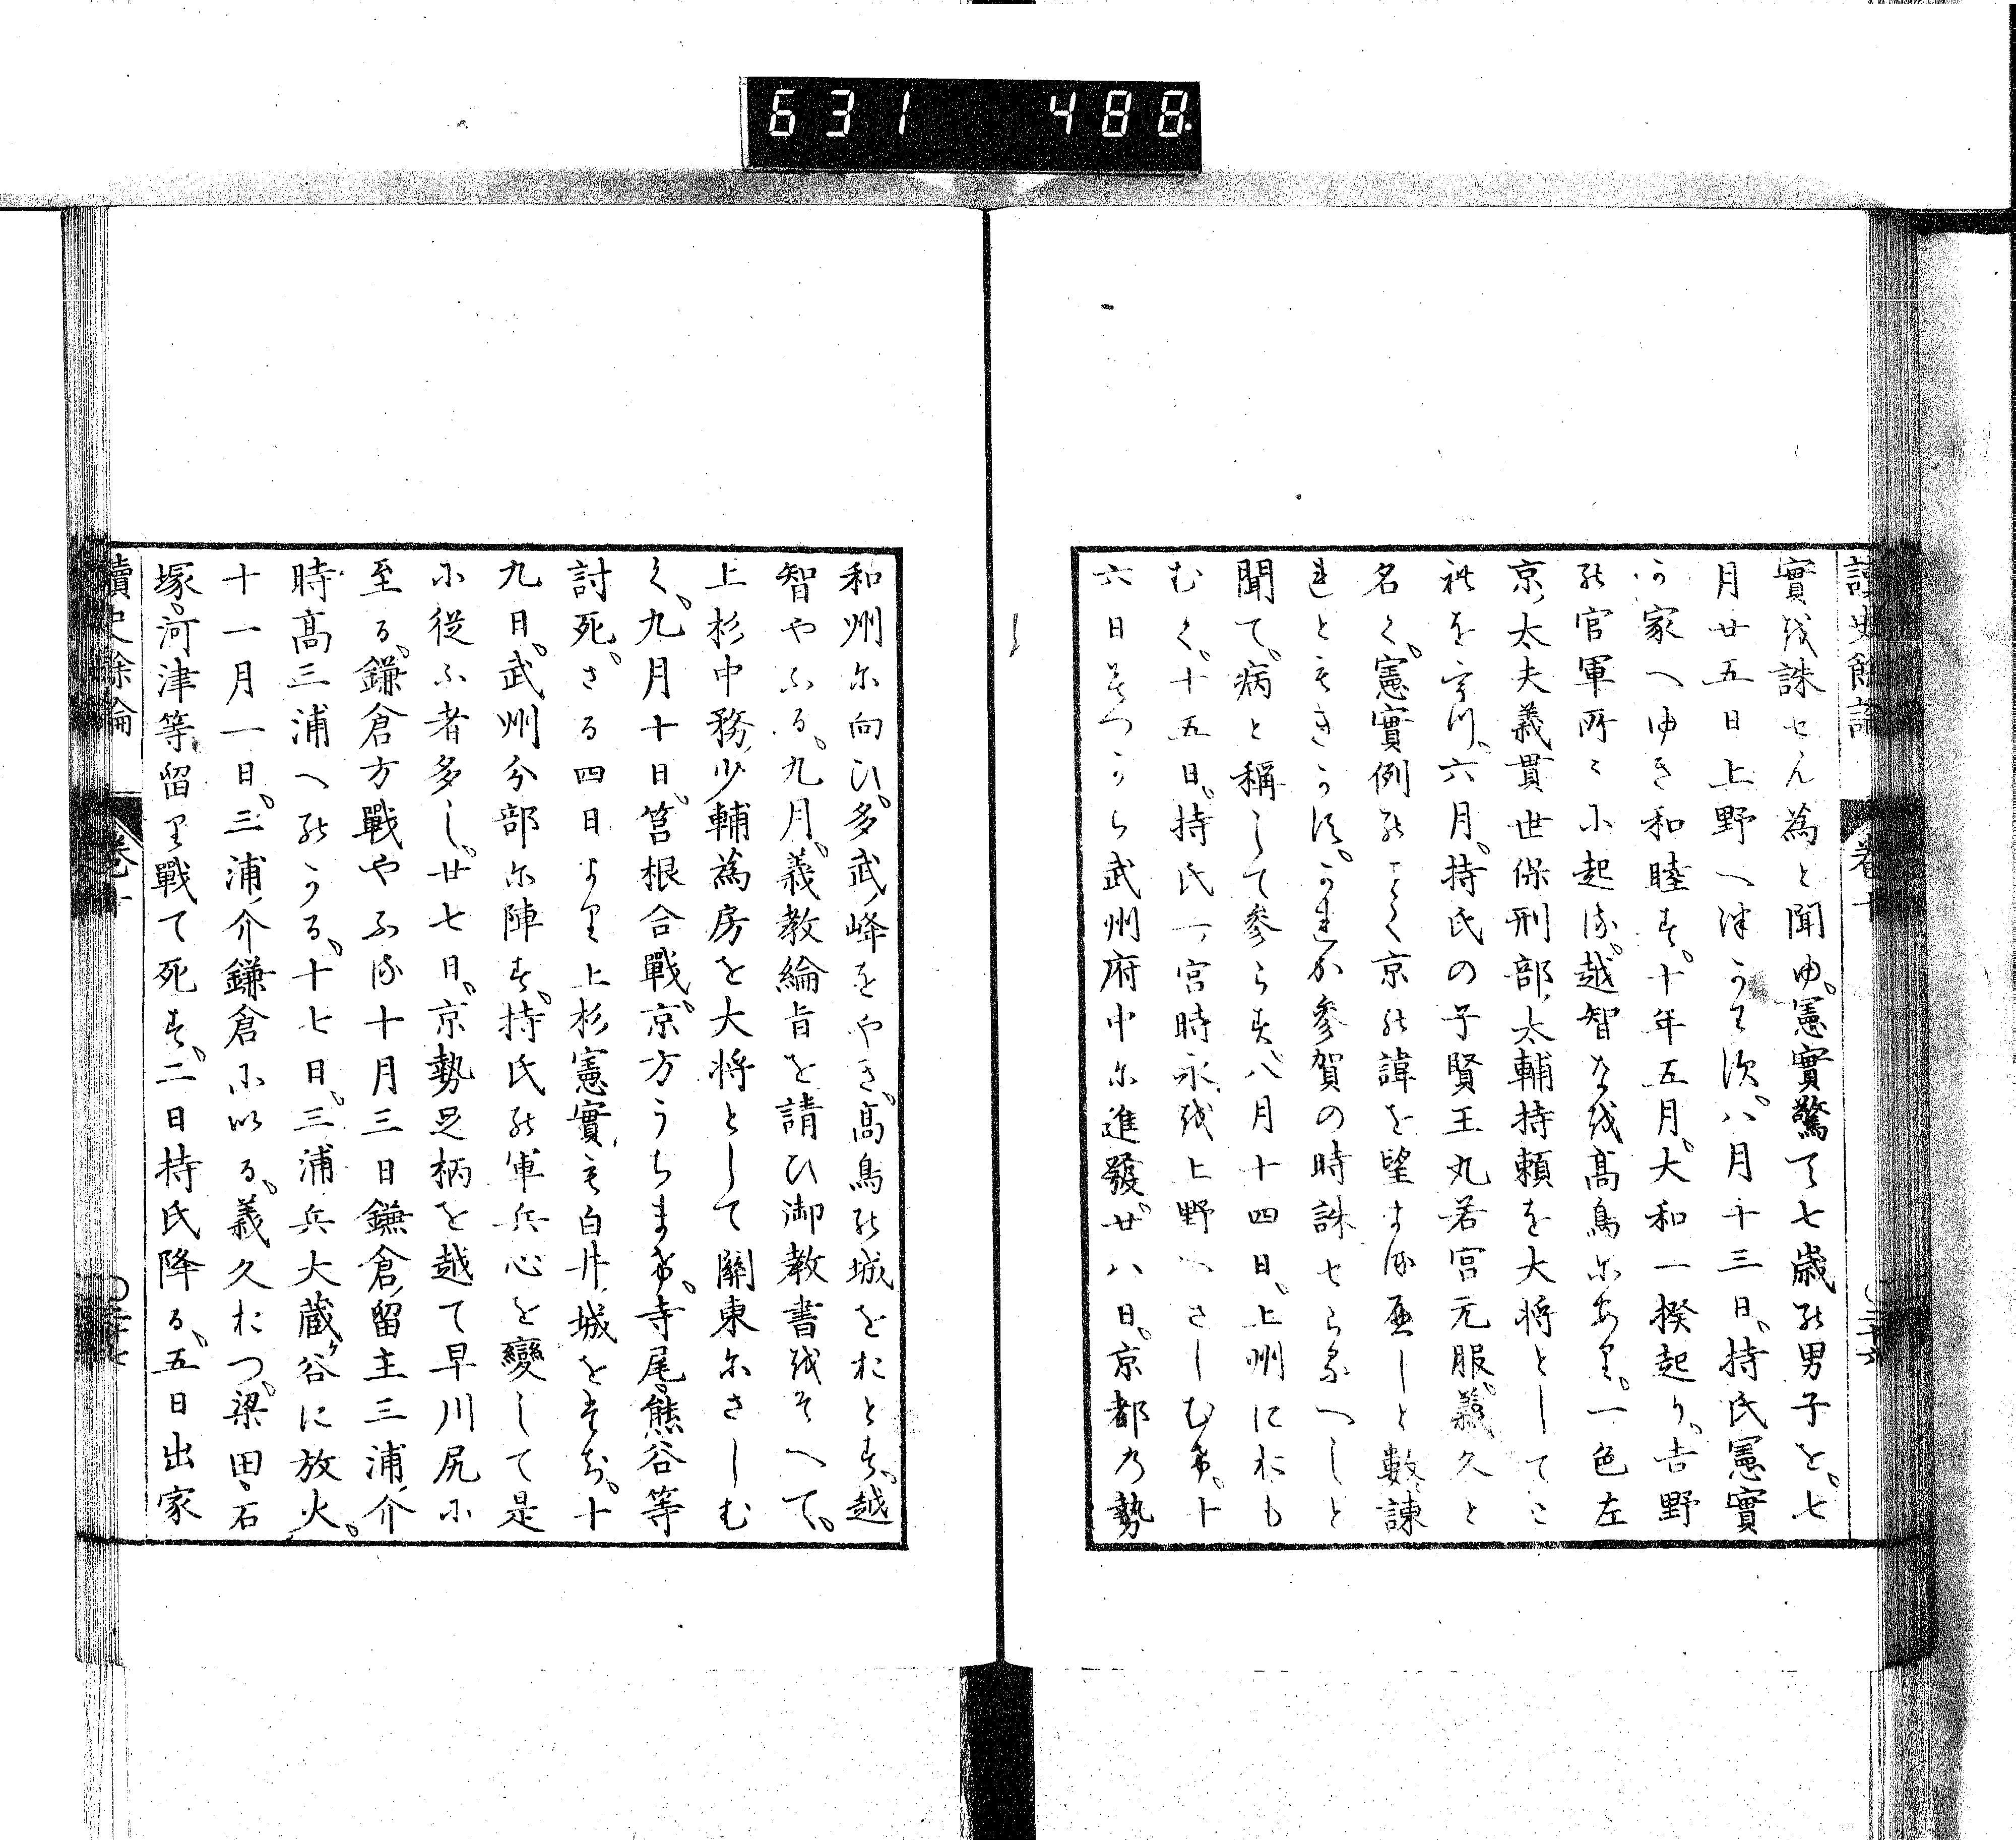 631 488
讀史餘論 卷十
實を誅せん為と聞ゆ。憲實驚て七歳の男子を。七
月廿五日上野へ津かはす。八月十三日。持氏憲實
か家へゆき和睦す。十年五月。大和一揆起り。吉野
の官軍所々に起る。越智なを髙鳥にあり。一色左
京太夫義貫世保刑部太輔持頼を大将としてこ
れをうつ。六月。持氏の子賢王丸若宮元服。義久と
名く。憲實例のことく京の諱を望まる可しと數諫
れともきかす。これか参賀の時誅せらるへしと
聞て。病と稱して参らす。八月十四日。上州におも
むく。十五日。持氏一宮時永を上野へさしむけ。十
六日みつから武州府中に進發。廿八日。京都乃勢
和州に向ひ。多武峰をやき。髙鳥の城をおとす。越
智やふる。九月。義教綸旨を請ひ御教書をそへて。
上杉中務少輔為房を大将として關東にさしむ
く。九月十日。筥根合戰。京方うちまけ。寺尾。熊谷等
討死。さる四日より上杉憲實も白井城をたち。十
九日。武州分部に陣す。持氏の軍兵心を變して是
に從ふ者多し。廿七日。京勢足柄を越て早川尻に
至る。鎌倉方戰やふる十月三日鎌倉留主三浦介
時髙三浦へのかる。十七日。三浦兵大蔵谷に放火。
十一月一日。三浦介鎌倉に以る。義久おつ。梁田。石
塚。河津等留り戰て死す。二日持氏降る。五日出家
讀史餘論 卷十